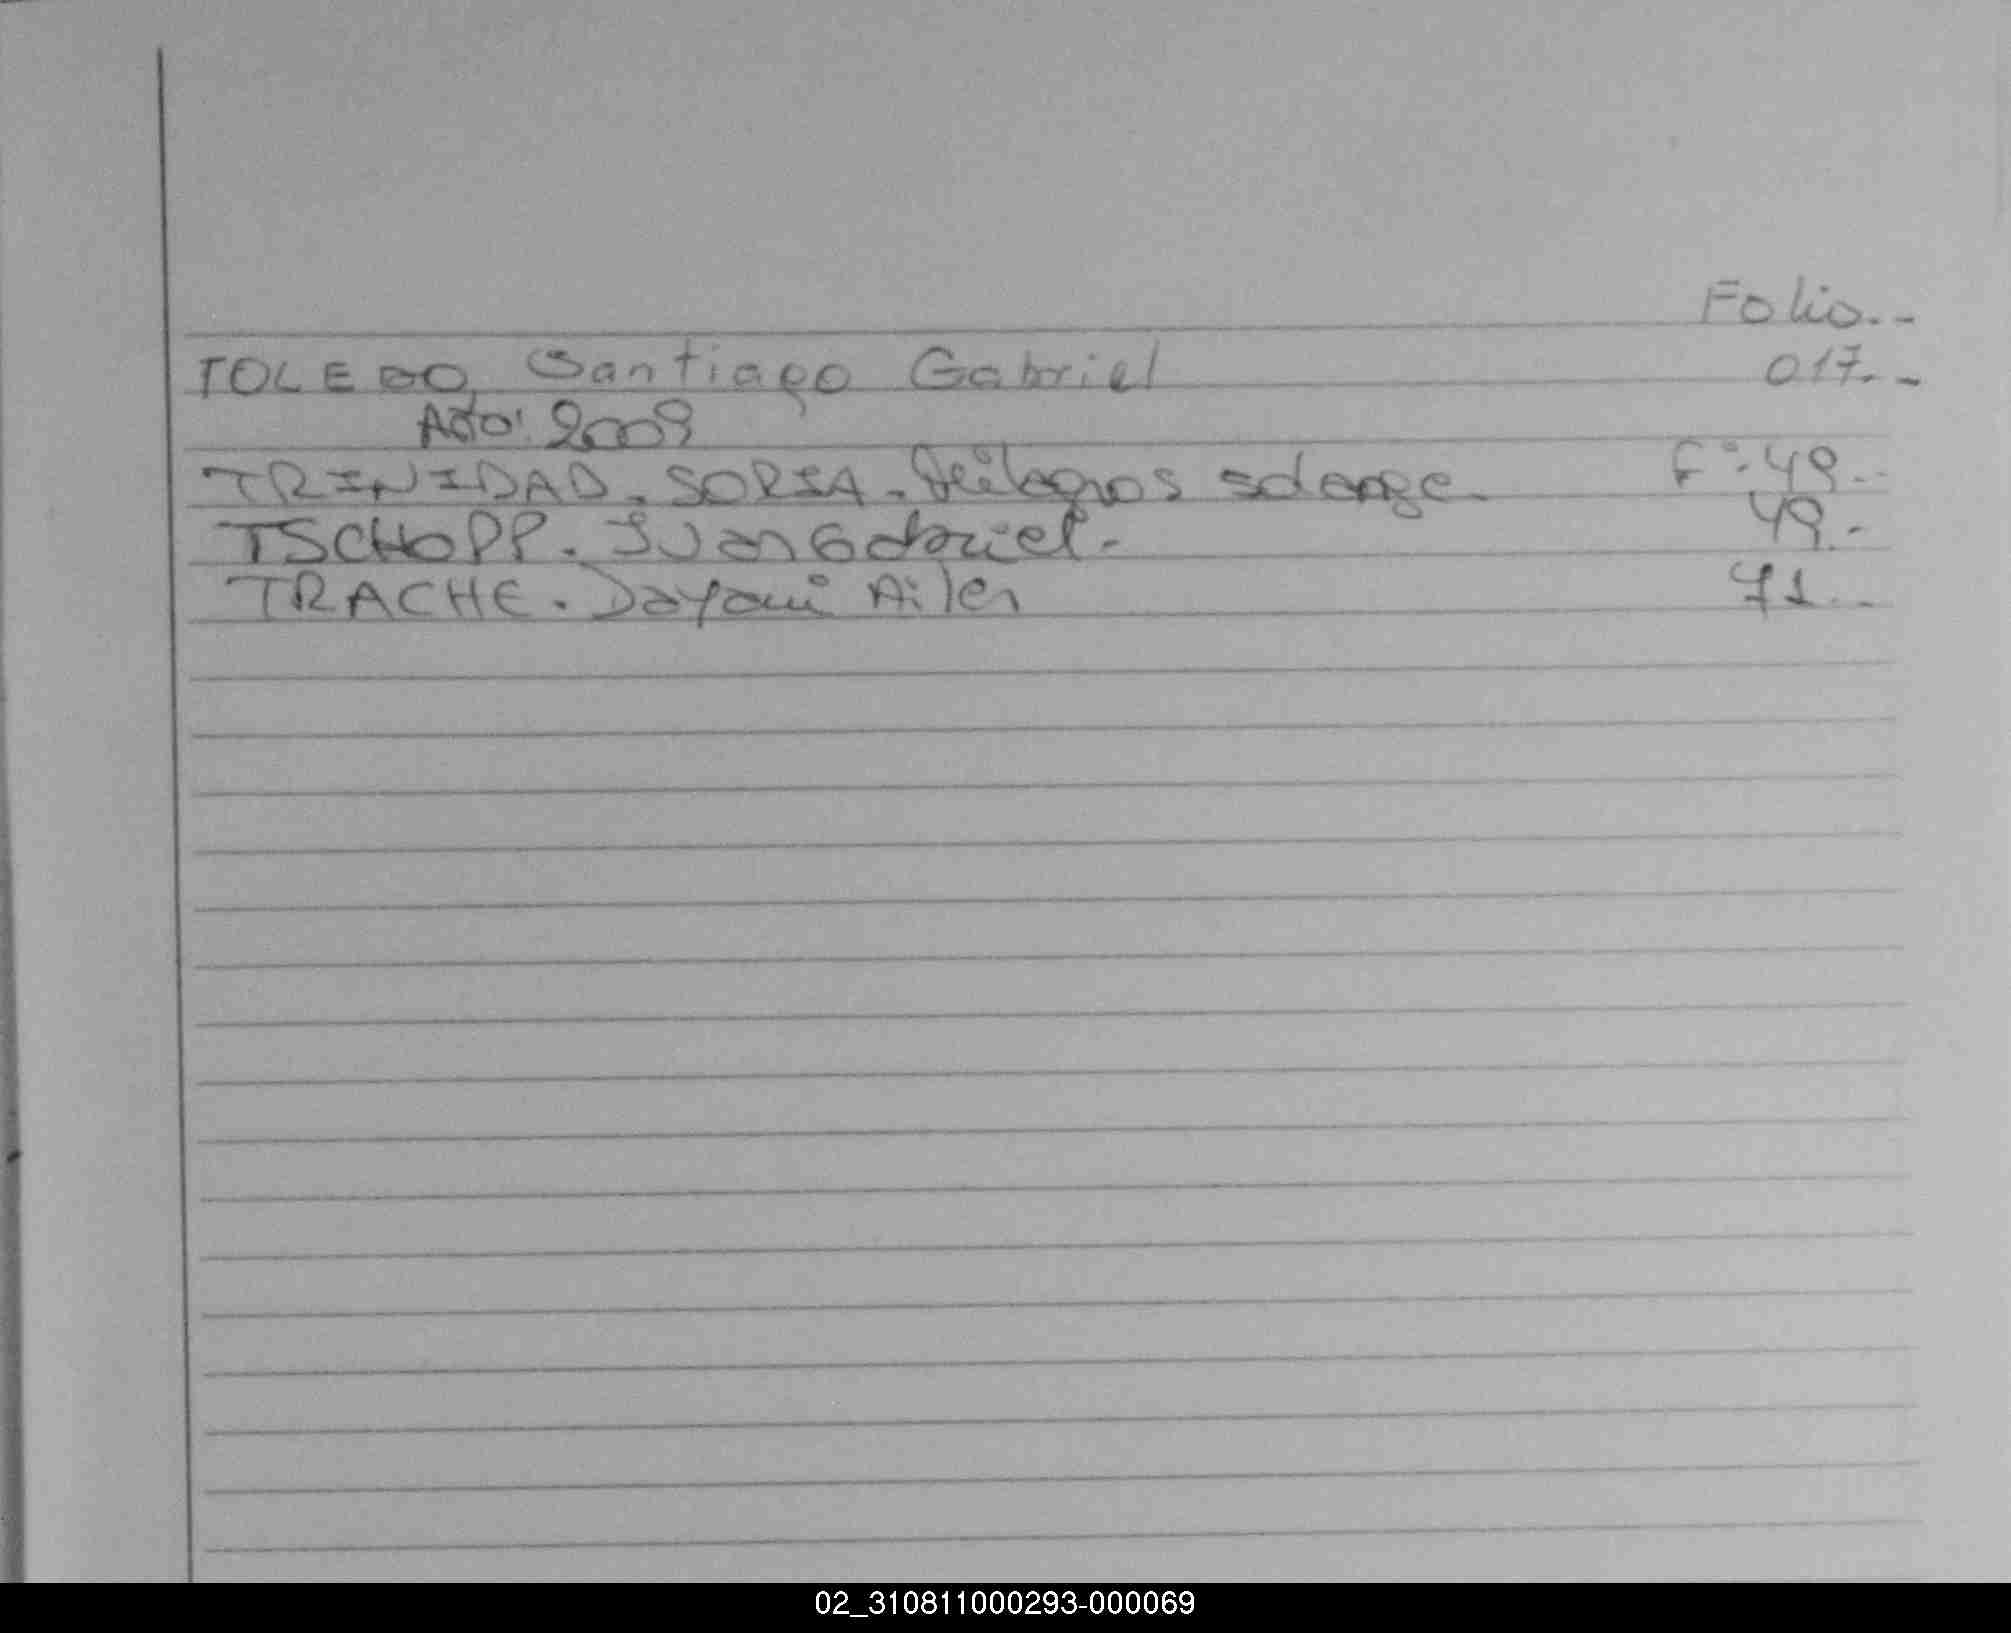 Folio..
TOLEDO, Santiago Gabriel 017..
Año: 2009
TRINIDAD. SORIA. Milagros Solange. Fº: 49..
TSCHOPP. Ivan Gabriel.- 49.-
TRACHE. Dayani Ailen 71..
02_310811000293-000069